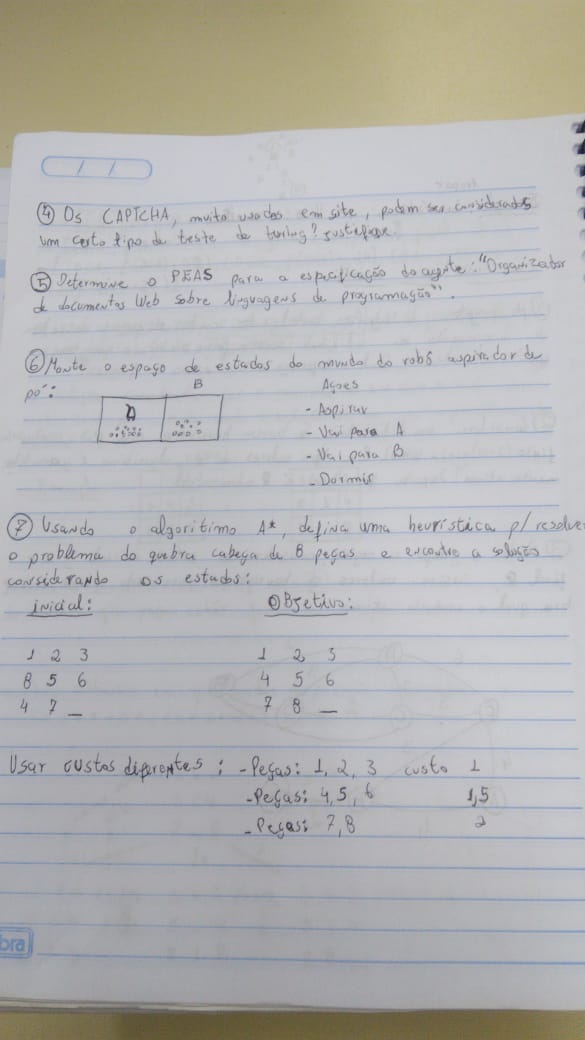 / /
④ Os CAPTCHA, muito usados em site, podem ser considerados
um certo tipo de teste de turing? justifique
⑤ Determine o PEAS para a especificação do agente: "Organizador
de documentos Web sobre linguagens de programação".
⑥ Monte o espaço de estados do mundo do robô aspirador de
pó:
B
Ações
- Aspirar
- Vai para A
- Vai para B
- Dormir
⑦ Usando o algoritimo A*, defina uma heurística p/ resolver
o problema do quebra cabeça de 8 peças e encontre a solução
considerando os estados:
inicial: Objetivo:
1 2 3 1 2 3
8 5 6 4 5 6
4 7 _ 7 8 _
Usar custos diferentes: - Peças: 1, 2, 3 custo 1
- Peças: 4, 5, 6 1,5
- Peças: 7, 8 2
bra